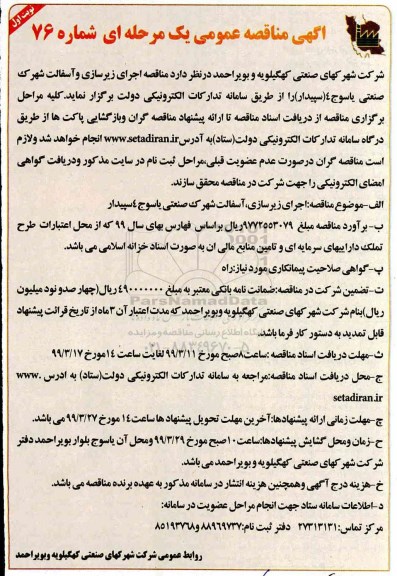 نوبت اول
آگهی مناقصه عمومی یک مرحله ای شماره ۷۶
شرکت شهرکهای صنعتی کهگیلویه و بویراحمد درنظر دارد مناقصه اجرای زیرسازی وآسفالت شهرک
صنعتی یاسوج۴(سپیدار)را از طریق سامانه تدارکات الکترونیکی دولت برگزار نماید.کلیه مراحل
برگزاری مناقصه از دریافت اسناد مناقصه تا ارائه پیشنهاد مناقصه گران وبازگشایی پاکت ها از طریق
درگاه سامانه تدارکات الکترونیکی دولت(ستاد)به آدرسwww.setadiran.ir انجام خواهد شد ولازم
است مناقصه گران درصورت عدم عضویت قبلی،مراحل ثبت نام در سایت مذکور ودریافت گواهی
امضای الکترونیکی را جهت شرکت در مناقصه محقق سازند.
الف-موضوع مناقصه:اجرای زیرسازی،آسفالت شهرک صنعتی یاسوج۴سپیدار
ب-برآورد مناقصه مبلغ ۹۷۷۲۵۵۳۰۷۹ریال براساس فهارس بهای سال ۹۹ که از محل اعتبارات طرح
تملک داراییهای سرمایه ای و تامین منابع مالی ان به صورت اسناد خزانه اسلامی می باشد.
پ-گواهی صلاحیت پیمانکاری مورد نیاز:راه
ت-تضمین شرکت در مناقصه:ضمانت نامه بانکی معتبر به مبلغ ۴۹۰۰۰۰۰۰۰ ریال(چهارصدو نود میلیون
ریال)بنام شرکت شهرکهای صنعتی کهگیلویه وبویراحمد که مدت اعتبار آن۳ماه از تاریخ قرائت پیشنهاد
قابل تمدید به دستور کار فرما باشد.
ث-مهلت دریافت اسناد مناقصه:ساعت۸صبح مورخ ۹۹/۳/۱۱ لغایت ساعت ۱۴مورخ ۹۹/۳/۱۷
ج-محل دریافت اسناد مناقصه:مراجعه به سامانه تدارکات الکترونیکی دولت(ستاد) به ادرس www.
setadiran.ir
چ-مهلت زمانی ارائه پیشنهادها:آخرین مهلت تحویل پیشنهاد ها ساعت۱۴ مورخ ۹۹/۳/۲۷ می باشد.
ح-زمان ومحل گشایش پیشنهادها:ساعت۱۰صبح مورخ ۹۹/۳/۲۹ ومحل آن یاسوج بلوار بویراحمد دفتر
شرکت شهرکهای صنعتی کهگیلویه و بویراحمد می باشد.
خ-هزینه درج آگهی وهمچنین هزینه انتشار در سامانه مذکور به عهده برنده مناقصه می باشد.
د-اطلاعات سامانه ستاد جهت انجام مراحل عضویت در سامانه:
مرکز تماس:۲۷۳۱۳۱۳۱ دفتر ثبت نام:۸۸۹۶۹۷۳۷و۸۵۱۹۳۷۶۸
روابط عمومی شرکت شهرکهای صنعتی کهگیلویه وبویراحمد
ParsNamadData